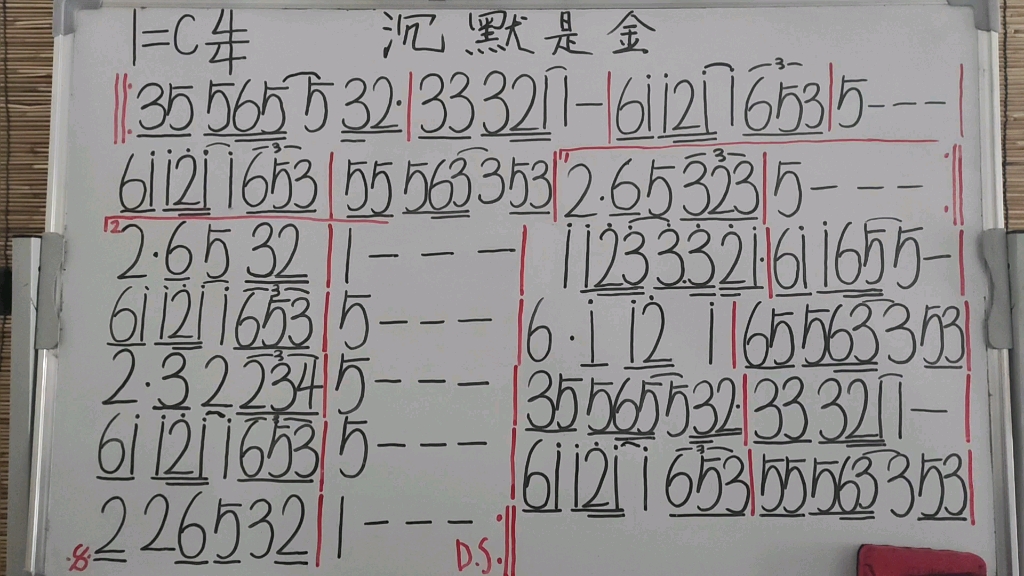 1=C 4/4 沉默是金
‖: 35 5565 5 32· | 33 3211 - | 6i i2i i 653 | 5 - - - |
6i i2i i 653 | 55 563 353 | 1 2·65 323 | 5 - - - :‖
2 2·65 32 | 1 - - - | i i233·32i· | 6i i655 - |
6i i2i i 653 | 5 - - - | 6·i i2 i | 655633 53 |
2·32 234 | 5 - - - | 35 565 532· | 33 3211 - |
6i i2i i 653 | 5 - - - | 6i i2i i 653 | 55 563 353 |
2 2 6 5 3 2 | 1 - - - :‖ D.S.